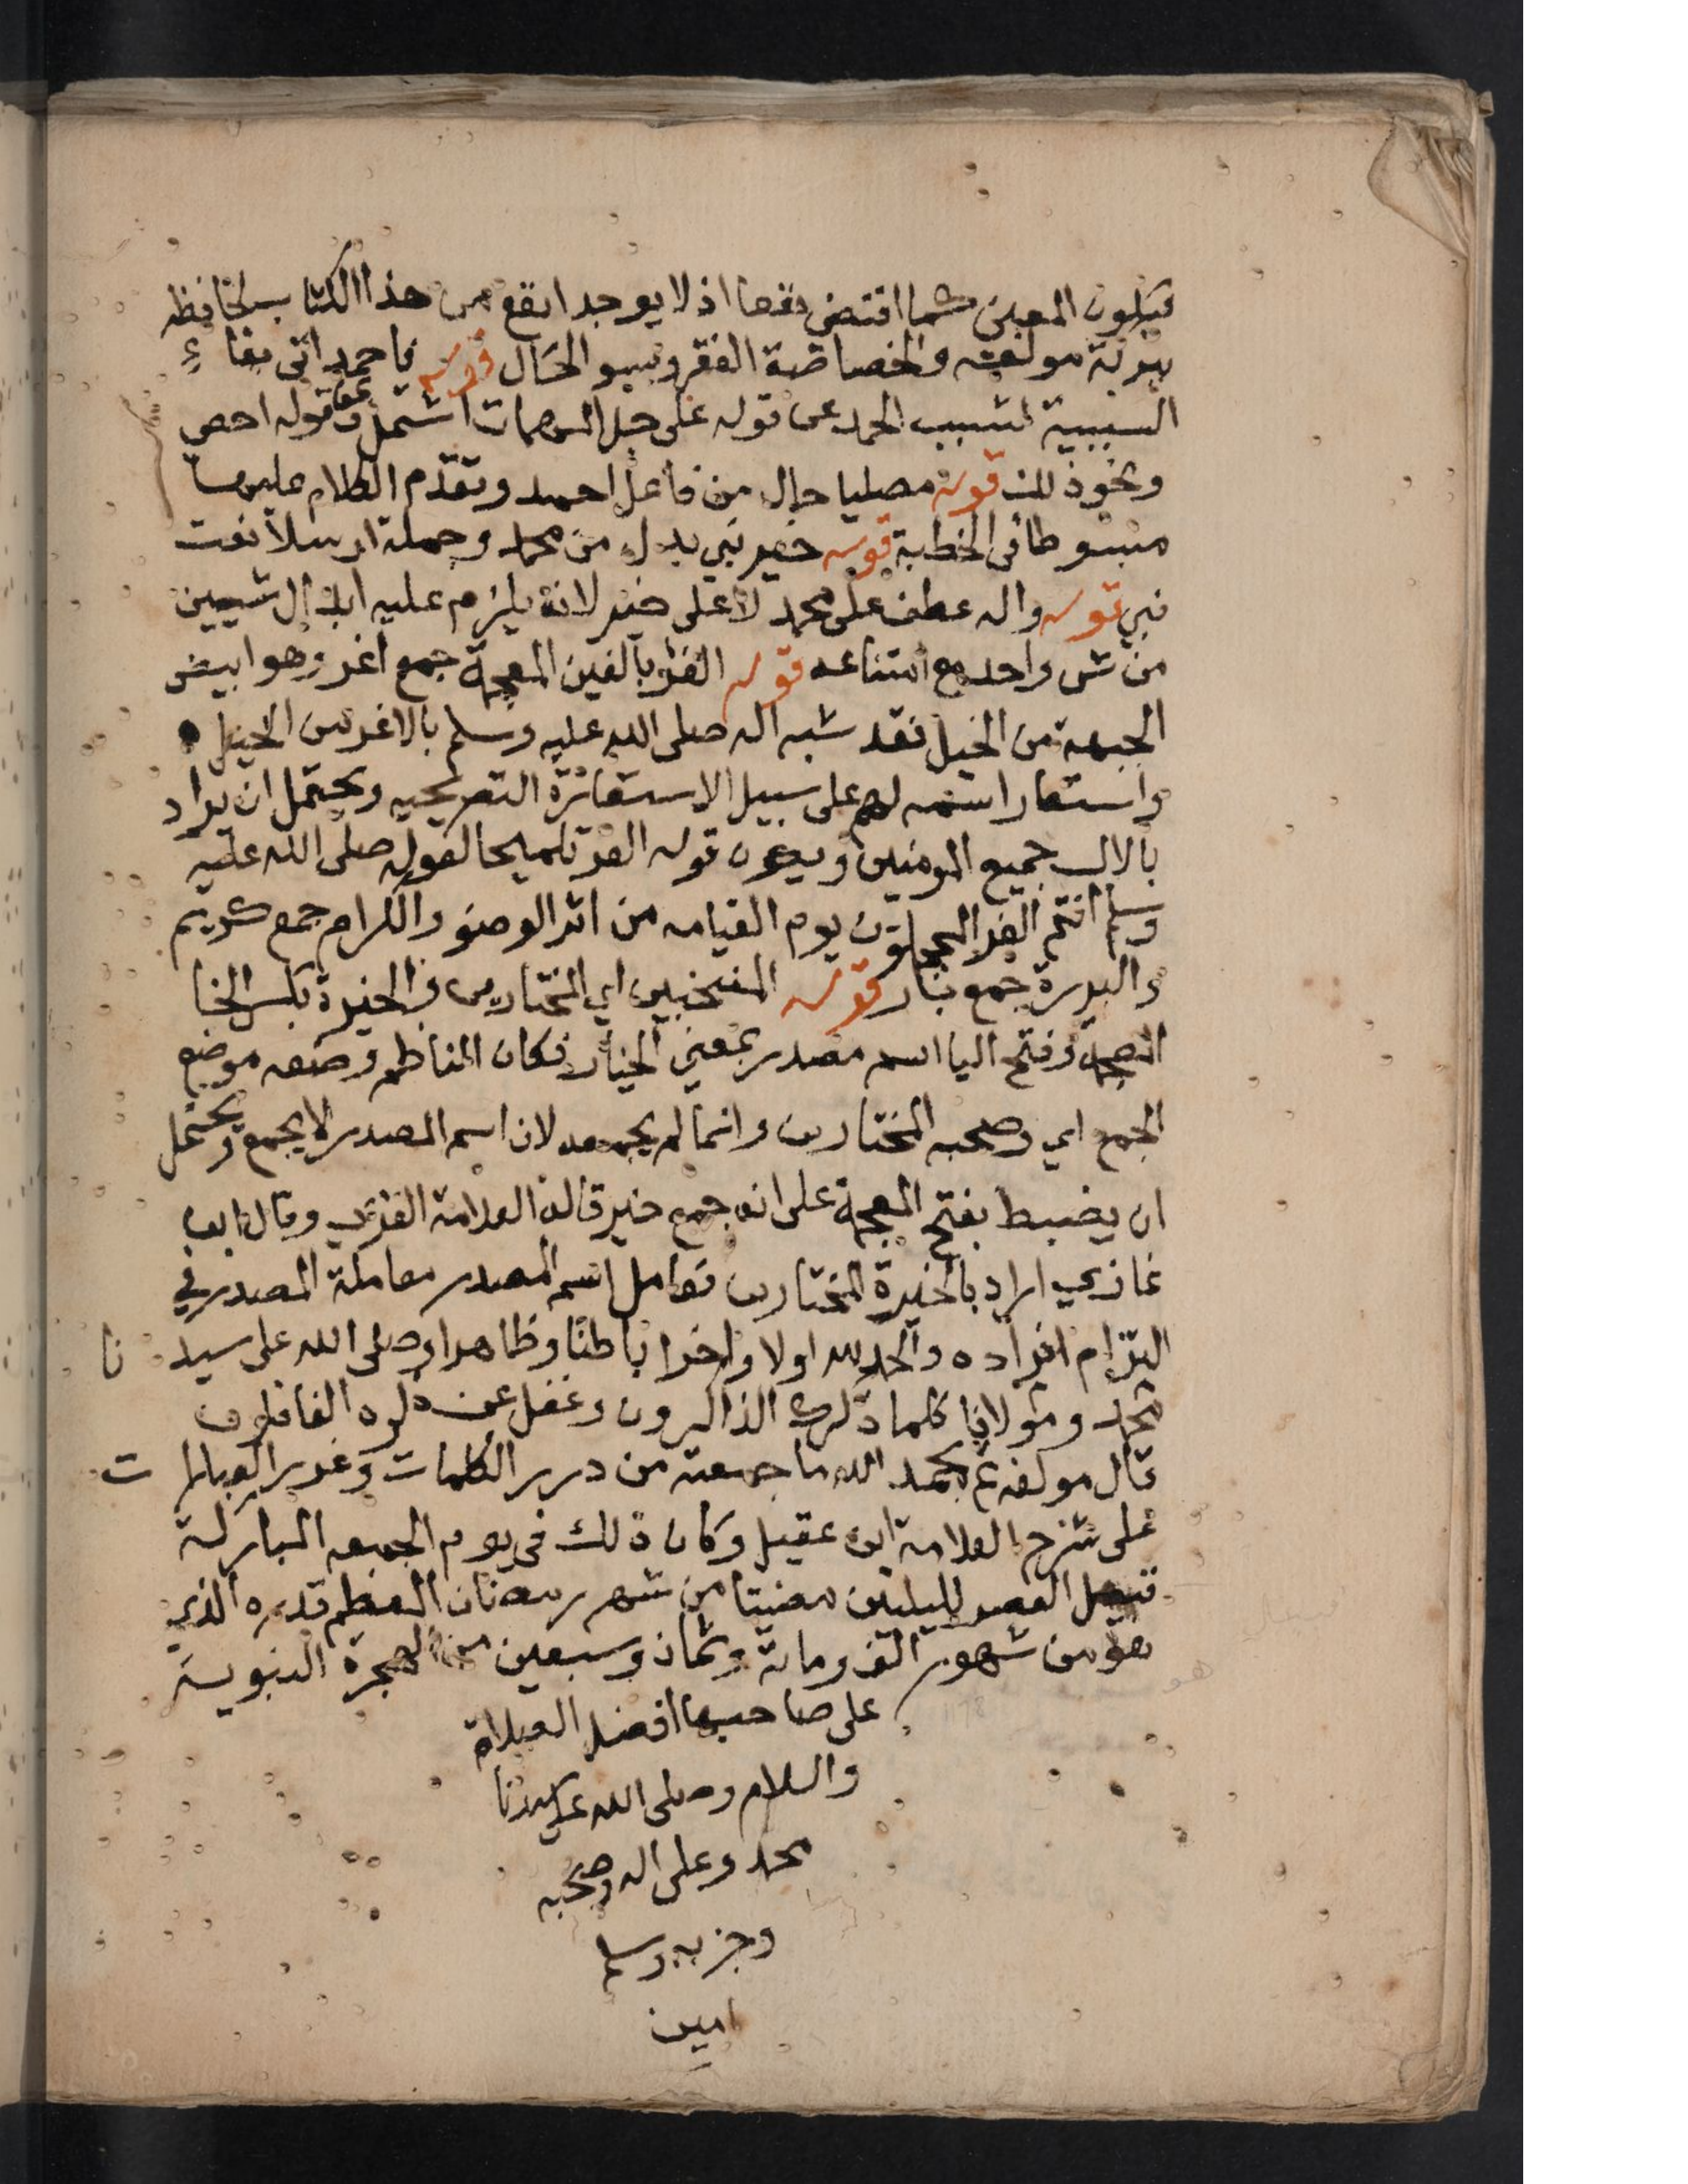 فيكون المعين كما اقتضى نفعا اذ لا يوجد انفع من هذا الكتاب لحافظه
ببركة مولفه والخصاصة الفقر وسو الحال قوله فاحمد اتى بفاء
السببية لتسبب الحمد عن قوله على جل المهمات اشتمل وعن قوله احصى
ونحو ذلك قوله مصليا حال من فاعل احمد وتقدم الكلام عليها
مبسوطا فى الخطبة قوله خير نبي بدل من محمد وجملة ارسلا نعت
نبي قوله واله عطف على محمد لا على خير لانه يلزم عليه ابدال شيين
من شى واحد مع امتناعه قوله الغر بالغين المعجمة جمع اغر وهو ابيض
الجبهة من الخيل فقد شبه اله صلى الله عليه وسلم بالاغر من الخيل
واستعار اسمه لهم على سبيل الاستعارة التصريحيه ويحتمل ان يراد
بالال جميع المومنين ويكون قوله الغر تلميحا لقوله صلى الله عليه
وسلم انتم الغر المحجلون يوم القيامه من اثر الوضو والكرام جمع كريم
والبررة جمع بار قوله المنتخبين اي المختارين والخيرة بكسر الخا
المعجمة وفتح اليا اسم مصدر بمعنى الخيار فكان الناظم وضعه موضع
الجمع اي وصحبه المختارين وانما لم يجمعه لان اسم المصدر لا يجمع ويحتمل
ان يضبط بفتح المعجمة على انه جمع خير قاله العلامة الغزي وقال ابن
غازي اراد بالخيرة المختارين فعامل اسم المصدر معاملة المصدر في
التزام افراده والحمد لله اولا واخرا باطنا وظاهرا وصلى الله على سيدنا
محمد ومولانا كلما ذكرك الذاكرون وغفل عن ذكره الغافلون
قال مولفه تم بحمد الله ما جمعته من درر الكلمات وغرر العبارات
على شرح العلامة ابن عقيل وكان ذلك فى يوم الجمعه المباركة
قبيل العصر لليلتين مضيتا من شهر رمضان المعظم قدره الذي
هو من شهور الف وماية وثمان وسبعين من الهجرة النبوية
على صاحبها افضل الصلاة
والسلام وصلى الله على سيدنا
محمد وعلى اله وصحبه
وحزبه وسلم
امين